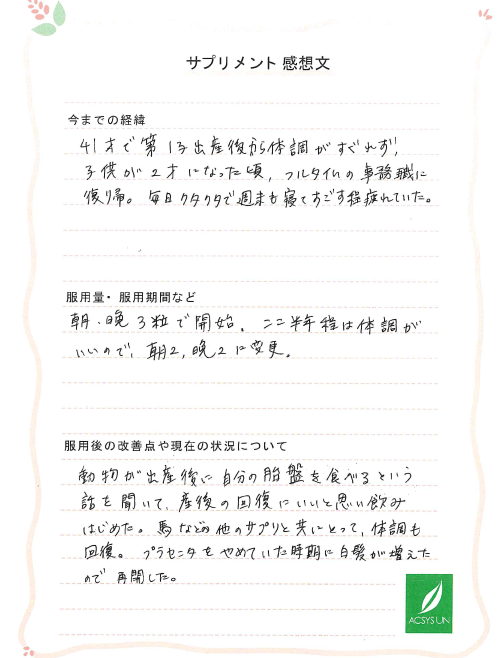 サプリメント 感想文
今までの経緯
41才で第1子出産後から体調がすぐれず、
子供が2才になった頃、フルタイムの事務職に
復帰。毎日クタクタで週末も寝てすごす程疲れていた。
服用量・服用期間など
朝、晩3粒で開始。ここ半年程は体調が
いいので、朝2,晩2に変更。
服用後の改善点や現在の状況について
動物が出産後に自分の胎盤を食べるという
話を聞いて、産後の回復にいいと思い飲み
はじめた。馬などの他のサプリと共にとって、体調も
回復。プラセンタをやめていた時期に白髪が増えた
ので再開した。
ACSYSUN